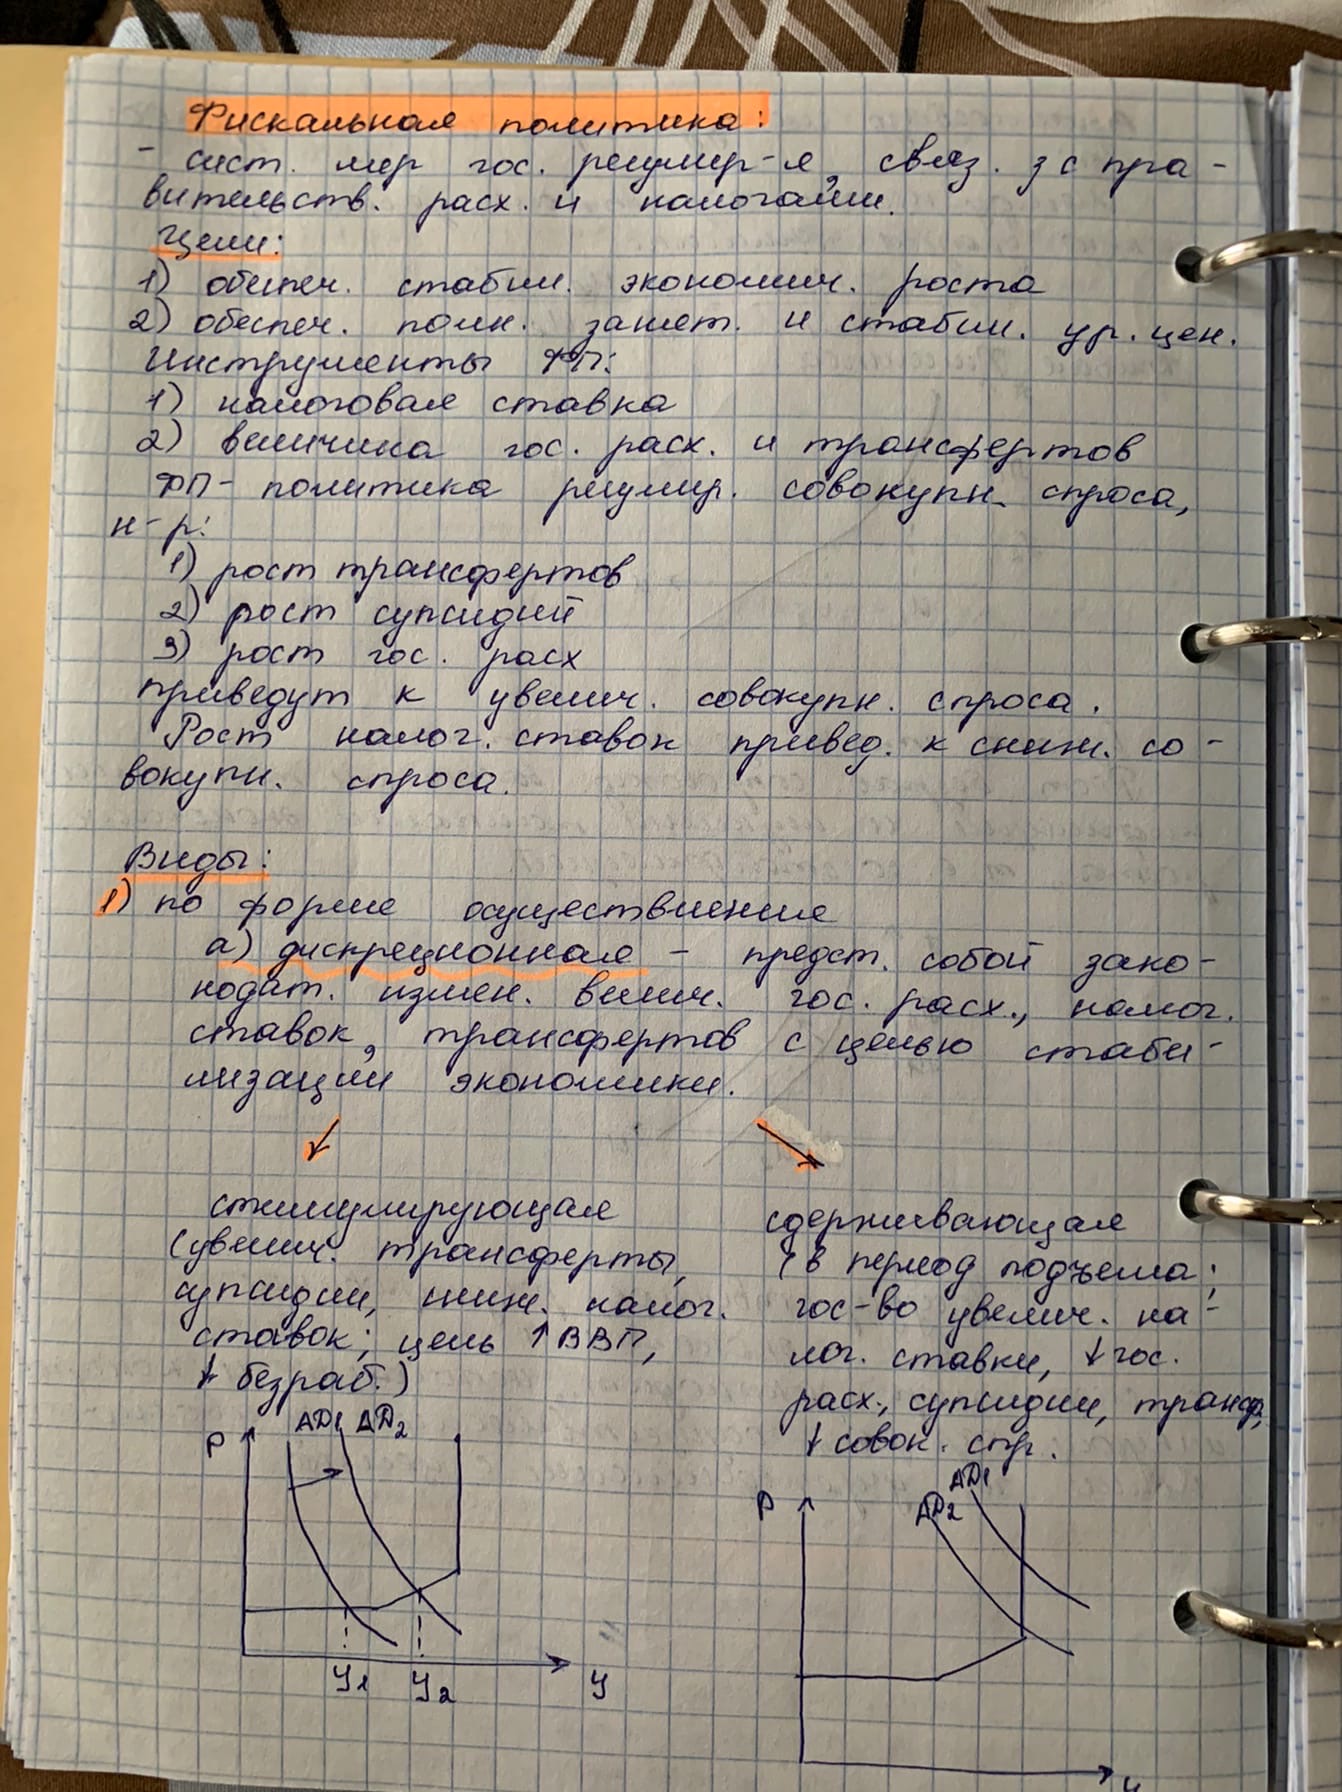 Фискальная политика:
- сист. мер гос. регулир-я, связ. з с пра-
вительств. расх. и налогами.
Цели:
1) обеспеч. стабил. экономич. роста
2) обеспеч. полн. занят. и стабил. ур. цен.
Инструменты ФП:
1) налоговая ставка
2) величина гос. расх. и трансфертов
ФП - политика регулир. совокупн. спроса,
н-р:
1) рост трансфертов
2) рост супсидий
3) рост гос. расх
приведут к увелич. совокупн. спроса.
Рост налог. ставок привед. к сниж. со-
вокупн. спроса.
Виды:
1) по форме осуществления
а) дискреционная - предст. собой зако-
нодат. измен. велич. гос. расх., налог.
ставок, трансфертов с целью стаби-
лизации экономики.
стимулирующая
(увелич. трансферты,
супсидии, сниж. налог.
ставок; цель ↑ ВВП,
↓ безраб.)
сдерживающая
(в период подъема;
гос-во увелич. на-
лог. ставки, ↓ гос.
расх., супсидии, трансф,
↓ совок. спр.
P AD1 AD2
y1 y2 y
P AD2 AD1
y